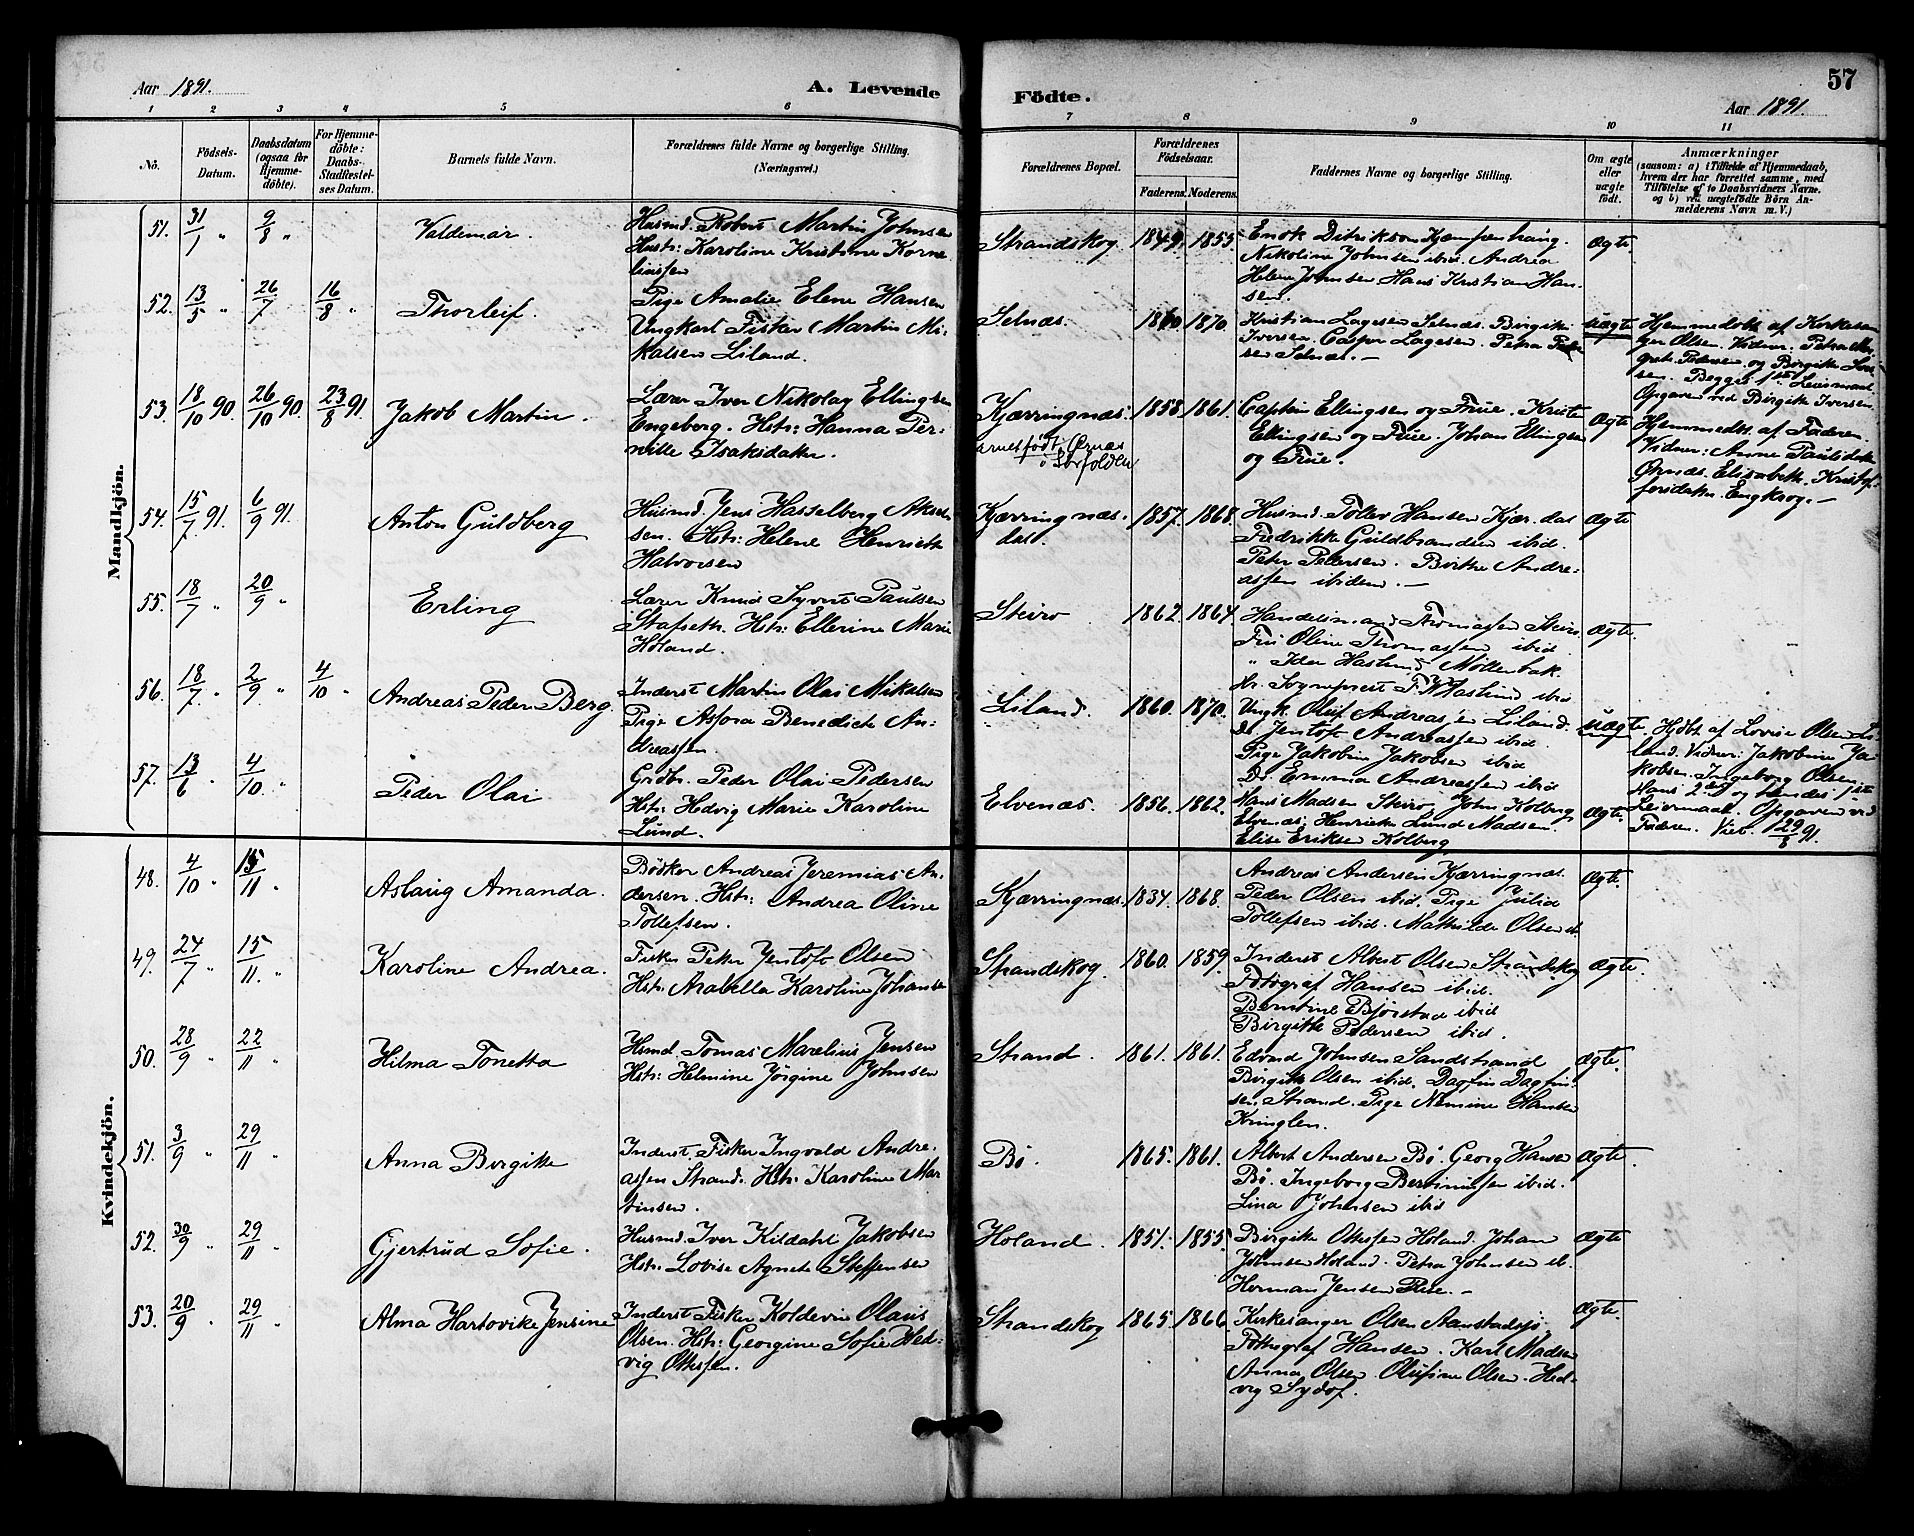 Aar 1891.
A. Levende
Födte.
57
Aar 1891.
1 2 3 4 5 6 7 8 9 10 11
No.
Födsels-
Datum.
Daabsdatum
(ogsaa for
Hjemme-
döbte).
For Hjemme-
döbte:
Daabs-
Stadfæstel-
ses Datum.
Barnets fulde Navn.
Forældrenes fulde Navne og borgerlige Stilling.
(Næringsvei.)
Forældrenes Bopæl.
Forældrenes
Födselsaar.
Faderens. Moderens.
Faddernes Navne og borgerlige Stilling.
Om ægte
eller
uægte
födt.
Anmærkninger
(saasom: a) i Tilfælde af Hjemmedaab,
hvem der har forrettet samme, med
Tilföielse af to Daabsvidners Navne,
og b) ved uægtefödte Börn An-
melderens Navn m. V.)
Mandkjön.
51. 31/1 " 9/8 " Valdemar.
Husmd. Robert Martin Johnsen
Hustr: Karoline Kristine Korne-
liussen
Strandskog. 1849. 1855.
Enok Ditriksen
Nikoline Johnsen ibid. Andrea
Helene Johnsen Hans Kristian Han-
sen.
Ægte.
52. 13/5 " 26/7 " 16/8 " Thorleif.
Pige Amalie Elene Hansen
Ungkarl Fisker Martin Mi-
kalsen Liland.
Selnæs. 1870.
Kristian Lagesen Selnæs. Birgitte
Iversen. Casper Lagesen. Petra Peder-
sen Selnæs. —
uægte
Hjemmedøbt af Kirkesan-
ger Olsen. Vidner. Petra Mar-
grete Pedersen og Birgitte Iver-
sen. Begges 1ste Leiermaal
Opgaven ved Birgitte Iversen.
53. 18/10 90. 26/10 90. 23/8 91. Jakob Martin.
Lærer Iver Nikolay Ellingsen
Engeberg. Hstr: Hanna Per-
nille Isaksdatter.
Kjærringnæs.
Barnet født: Ørnes
i Sørfolden
1858. 1861.
Captein Ellingsen og Frue. Kristen
Ellingsen og Frue. Johan Ellingsen
og Frue.
Ægte
Hjemmedbt. af Faderen.
Vidner: Anne Paulsdatter
Ørnæs. Elisabeth Kristof-
fersdatter. Engkrog. —
54. 15/7. 91. 6/9 91. Anton Guldberg
Husmd. Jens Hasselberg Aksel-
sen. Hstr: Helene Henriette
Halvorsen
Kjærringnæs.
dal.
1857. 1868.
Husmd. Tollev Hansen Kjær.dal
Fredrikke Guldbrandsen ibid.
Peter Petersen. Birthe Andre-
assen ibidem. —
Ægte
55. 18/7 " 20/9 " Erling
Lærer Knud Syvert Paulsen
Stafseth. Hstr: Ellerine Marie
Holand.
Steiro 1862. 1864.
Handelsmand Thomassen Steiro
Fru Oline Thomassen ibid
" Ider Haslund Möllebak.
Hr. Sogneprest F. W. Haslund ibid
Ægte.
56. 18/7. " 2/9 " 4/10 " Andreas Peder Berg.
Inderst Martin Olai Mikalsen
Pige Assora Benedicte An-
dreassen.
Liland. 1860. 1870.
Ungk. Oluf Andreassen Liland.
Do Jentoft Andreassen ibid.
Pige Jakobine Jakobsen ibid
Do. Emma Andreassen ibid
uægte.
Hjdbt. af Lovise Olsen Li-
land. Vidner: Jakobine Ja-
kobsen. Ingeborg Olsen.
Hans 2det og hendes 1ste
Leiermaal. Opgaven ved
Faderen. Viet. 29/8 91.
57. 13/6 " 4/10. " Peder Olai.
Grdbr. Peder Olai Pedersen
Hstr: Hedvig Marie Karoline
Lund.
Elvenæs. 1856. 1862.
Hans Madsen Steiro, John Kolberg
Elvenæs, Henriette Lund Madsen.
Elise Eriksen Kolberg
Ægte.
Kvindekjön.
48. 4/10 " 15/11 " Aslaug Amanda.
Bødker Andreas Jeremias An-
dersen. Hstr: Andrea Oline
Tollefsen.
Kjærringnæs. 1834. 1868.
Andreas Andersen Kjærringnæs.
Peder Olsen ibid. Pige Julia
Tollefsen ibid. Mathilde Olsen ib.
Ægte.
49. 24/7 " 15/11. " Karoline Andrea.
Fisker Peter Jentoft Olsen
Hstr: Arabella Karoline Johansen
Strandskog. 1860. 1859.
Inderst Albert Olsen Strandskog
Fotograf Hansen ibid.
Berntine Bjørstad ibid
Birgitte Pedersen ibid.
Ægte.
50. 28/9 " 22/11 " Hilma Tonetta
Hsmd. Tomas Marelius Jensen
Hstr: Helmine Jörgine Johnsen
Strand. 1861. 1861.
Edvard Johnsen Sandstrand
Birgitte Olsen ibid. Dagfin Dagfin-
sen. Strand. Pige Nemine Hansen
Kringlen.
Ægte.
51. 3/9 " 29/11 " Anna Birgitte
Inderst. Fisker Ingvald Andre-
assen Strand. Hstr: Karoline Mar-
tinsen.
Bø. 1865. 1861.
Albert Andersen Bø. Georg Hansen
Bø. Ingeborg Berntinussen ibid.
Lina Johnsen ibid
Ægte.
52. 30/9 " 29/11 " Gjertrud Sofie.
Husmd. Iver Kildahl Jakobsen
Hstr: Lovise Agnete Steffensen
Holand. 1851. 1855.
Birgitte Ottesen Holand. Johan
Johnsen Holand. Petra Johnsen ib.
Herman Jensen —
Ægte
53. 20/9 " 29/11 " Alma Hartvikke Jensine
Inderst Fisker Koldevin Olaus
Olsen. Hstr: Georgine Sofie Hed-
vig Ottesen.
Strandskog 1865. 1866.
Kirkesanger Olsen Aanstadsjø.
Fotograf Hansen. Karl Madsen
Anna Olsen. Olufine Olsen. Hed-
vig Sydof.
Ægte.